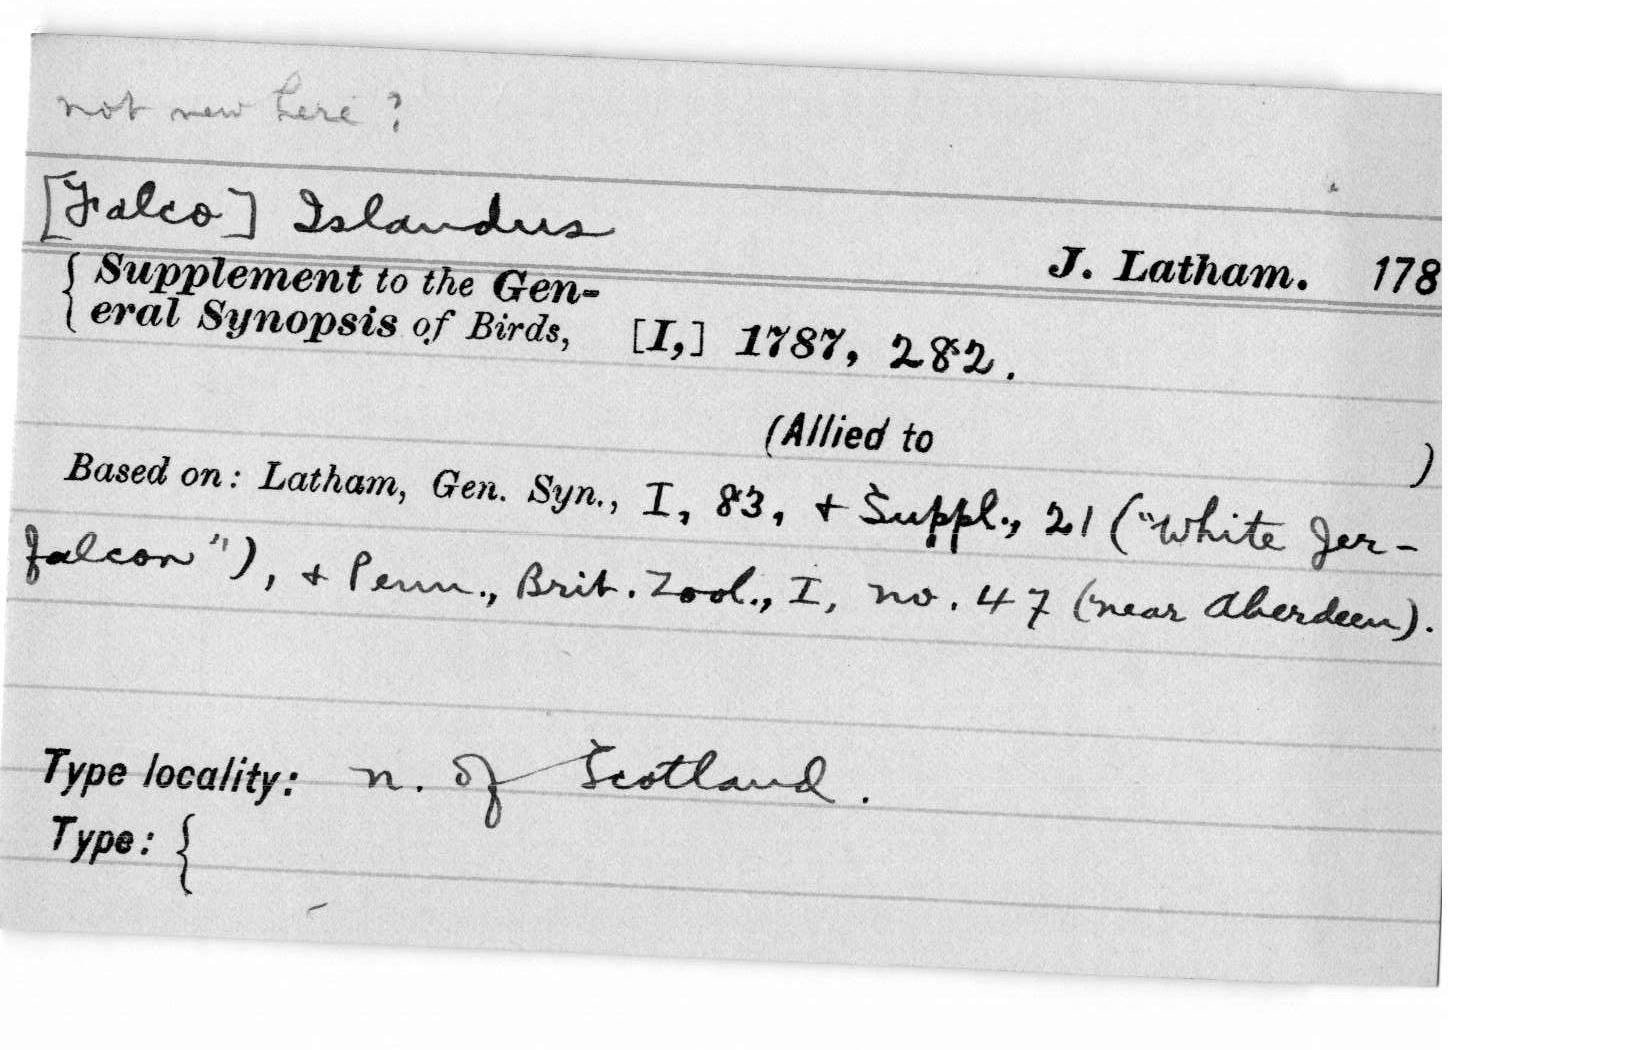 not new here?
[Falco] Islandus
J. Latham. 178
{ Supplement to the Gen-
eral Synopsis of Birds, [I,] 1787, 282.
(Allied to )
Based on: Latham, Gen. Syn., I, 83, + Suppl., 21 ("White Jer-
falcon"), + Penn., Brit. Zool., I, no. 47 (near Aberdeen).
Type locality: n. of Scotland.
Type: {